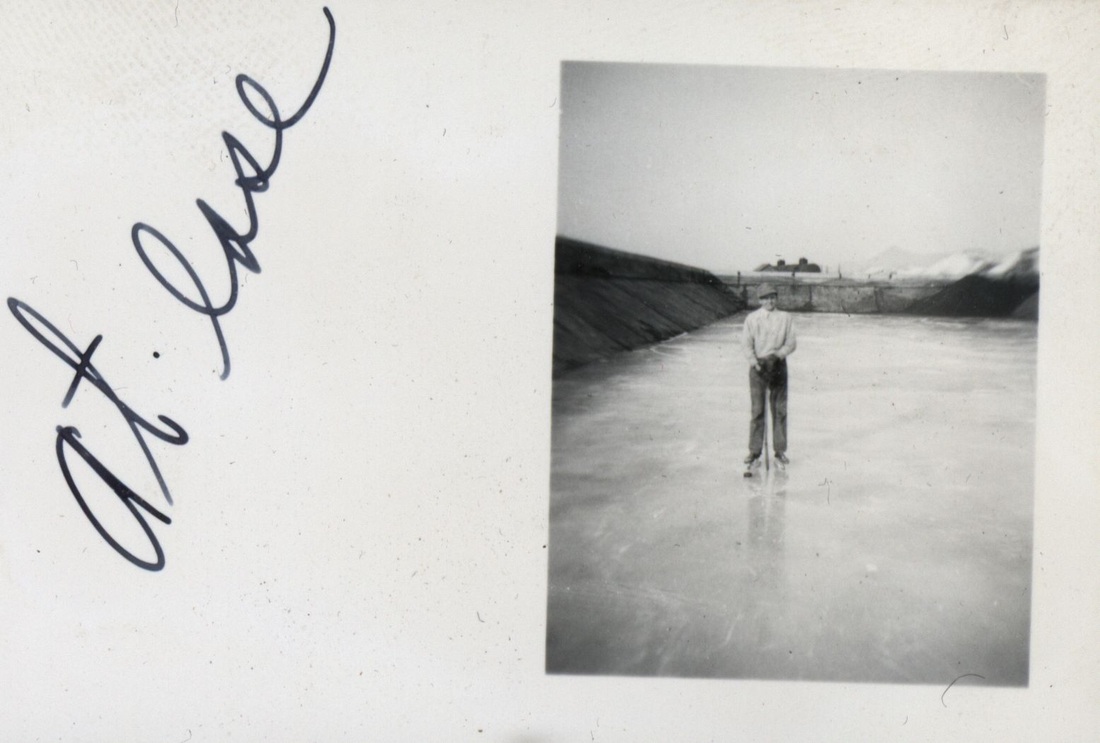 at. ease